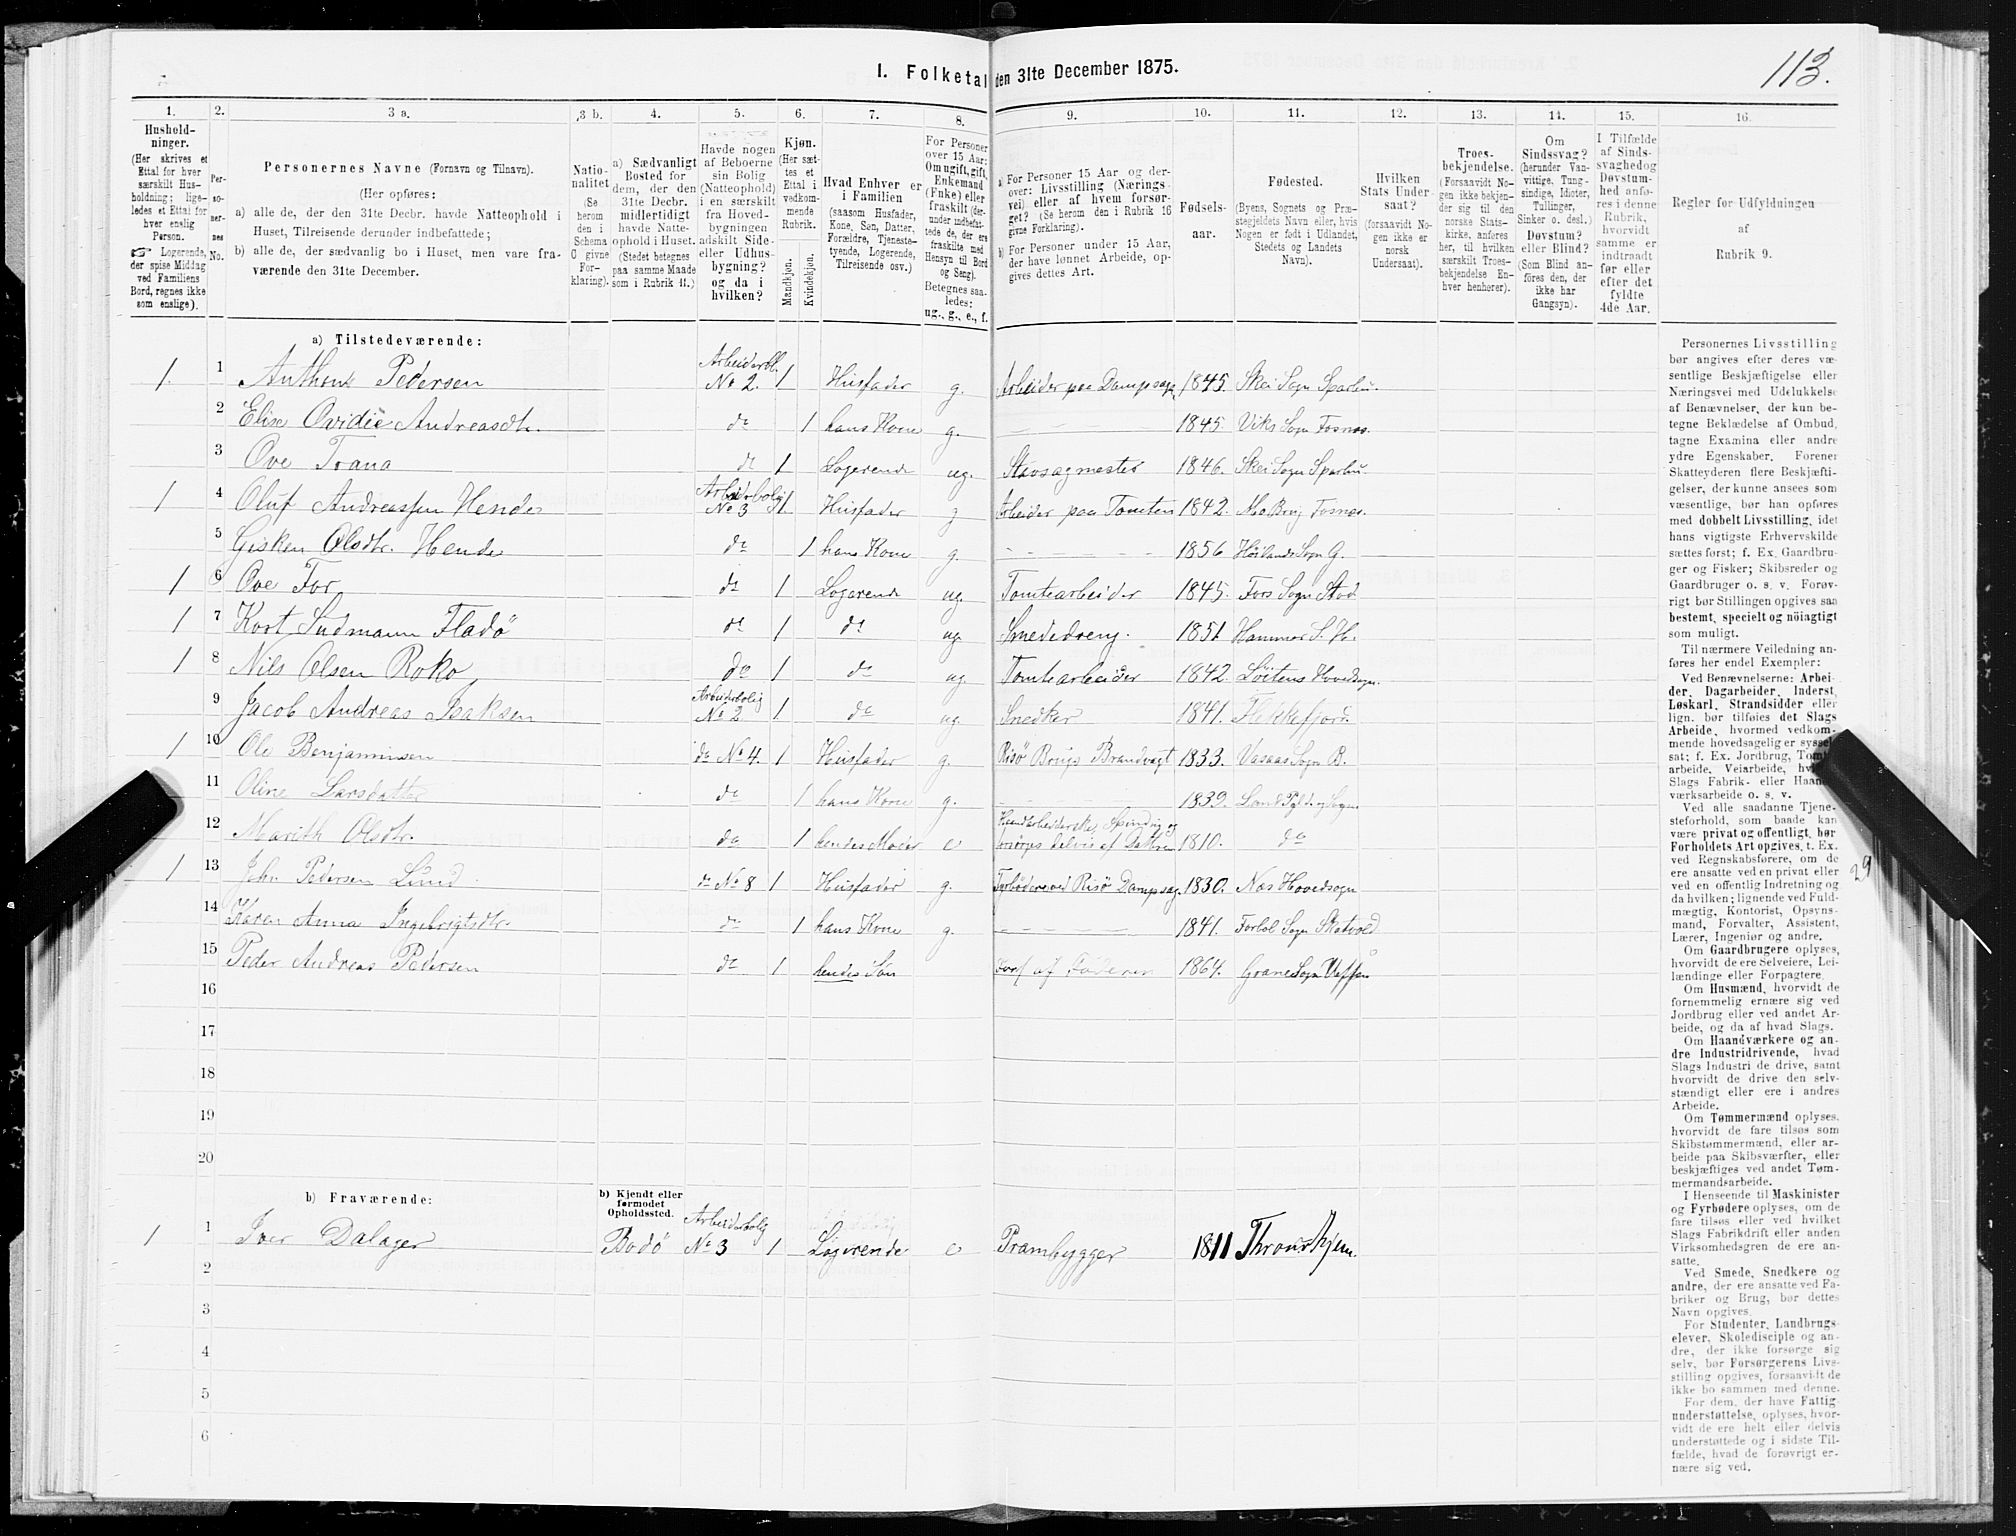 113.
1. Folketal den 31te December 1875.
1. 2. 3 a. 3 b. 4. 5. 6. 7. 8. 9. 10. 11. 12. 13. 14. 15. 16.
Hushold-
ninger.
(Her skrives et
Ettal for hver
særskilt Hus-
holdning; lige-
ledes et Ettal for
hver enslig
Person.
☞ Logerende,
der spise Middag
ved Familiens
Bord, regnes ikke
som enslige).
Per-
so-
ner-
nes
No.
Personernes Navne (Fornavn og Tilnavn).
(Her opføres:
a) alle de, der den 31te Decbr. havde Natteophold i
Huset, Tilreisende derunder indbefattede;
b) alle de, der sædvanlig bo i Huset, men vare fra-
værende den 31te December.
Natio-
nalitet
(Se
herom
den i
Schema
C givne
For-
klaring).
a) Sædvanligt
Bosted for
dem, der den
31te Decbr.
midlertidigt
havde Natte-
ophold i Huset.
(Stedet betegnes
paa samme Maade
som i Rubrik 11.)
Havde nogen
af Beboerne
sin Bolig
(Natteophold)
i en særskilt
fra Hoved-
bygningen
adskilt Side-
eller Udhus-
bygning?
og da i
hvilken?
Kjøn.
(Her sæt-
tes et
Ettal i
vedkom-
mende
Rubrik.
Mandkjøn.
Kvindekjøn.
Hvad Enhver er
i Familien
(saasom Husfader,
Kone, Søn, Datter,
Forældre, Tjeneste-
tyende, Logerende,
Tilreisende osv.)
For Personer
over 15 Aar:
Om ugift, gift,
Enkemand
(Enke) eller
fraskilt (der-
under indbefat-
tede de, der ere
fraskilte med
Hensyn til Bord
og Seng).
Betegnes saa-
ledes:
ug., g., e., f.
a) For Personer 15 Aar og der-
over: Livsstilling (Nærings-
vei) eller af hvem forsør-
get? (Se herom den i Rubrik 16
givne Forklaring).
b) For Personer under 15 Aar,
der have lønnet Arbeide, op-
gives dettes Art.
Fødsels-
aar.
Fødested.
(Byens, Sognets og Præ-
stegjeldets Navn eller, hvis
Nogen er født i Udlandet,
Stedets og Landets
Navn).
Hvilken
Stats Under-
saat?
(forsaavidt No-
gen ikke er
norsk
Undersaat).
Troes-
bekjendelse.
(Forsaavidt No-
gen ikke bekjen-
der sig til den
norske Stats-
kirke, anføres
her, til hvilken
særskilt Troes-
bekjendelse En-
hver henhører).
Om
Sindssvag?
(herunder Van-
vittige, Tung-
sindige, Idioter,
Tullinger,
Sinker o. desl.)
Døvstum?
eller Blind?
(Som Blind an-
føres den, der
ikke har
Gangsyn).
I Tilfælde
af Sinds-
svaghed og
Døvstum-
hed anfø-
res i denne
Rubrik,
hvorvidt
samme er
indtraadt
før eller
efter det
fyldte
4de Aar.
Regler for Udfyldningen
af
Rubrik 9.
a) Tilstedeværende:
1. 1 Anthons Pedersen Arbeiderbl. No 2. 1 Husfader g. Arbeider paa Dampsag 1845. Skei Sogn Sparbu.
2 Elise Ovidie Andreasdtr. do 1 hans Kone g. 1845. Viks Sogn Fosnæs.
3 Ove Trana do 1 Logerende ug. Stavsagmester 1846. Skei Sogn Sparbu.
1 4 Oluf Andreassen Hende Arbeiderbolig No 3 1 Husfader g Arbeider paa Tomten 1842. Fosnæs.
5 Gisken Olsdtr. Hende do 1 hans Kone g. 1856 Høilands Sogn G.
1 6 Ove For do 1 Logerende ug. Tomtearbeider 1845. Fors Sogn Stod
1 7 Kort Sudmann Fladø do 1 do ug. Smededreng. 1851. Hammer S. H.
1 8 Nils Olsen Roko do 1 do ug. Tomtearbeider 1842. Løitens Hovedsogn.
9 Jacob Andreas Isaksen Arbeiderbolig No 2 1 do ug Snedker 1841. Flekkefjord.
1 10 Ole Benjaminsen do No 4. 1 Husfader g. Risø Brugs Brandvagt 1833. Vasaas Sogn B.
11 Oline Larsdatter do 1 hans Kone g. 1839.
12 Marith Olsdtr. do 1 hendes Moder e Haandarbeiderske, Spinding og delvis af 1810. do
1 13 John Pedersen Lund do No 8 1 Husfader g. Fyrbøder ved Risø Dampsag 1830. Næs Hovedsogn
14 Karen Anna Ingebrigtsdtr. do 1 hans Kone g. 1841. Forbol Sogn Skatvold
15 Peder Andreas Pedersen do 1 hendes Søn Fors af Faderen 1864. Grane Sogn Vefsen
16
17
18
19
20
b) Fraværende:
b) Kjendt eller
formodet
Opholdssted.
1 1 Iver Dalager Bodø Arbeiderbolig No 3 1 Logerende e Prambygger 1811 Throndhjem.
2
3
4
5
6
29
Personernes Livsstilling
bør angives efter deres væ-
sentlige Beskjæftigelse eller
Næringsvei med Udelukkelse
af Benævnelser, der kun be-
tegne Beklædelse af Ombud,
tagne Examina eller andre
ydre Egenskaber. Forener
Skatteyderen flere Beskjæfti-
gelser, der kunne ansees som
væsentlige, bør han opføres
med dobbelt Livsstilling, idet
hans vigtigste Erhvervskilde
sættes først; f. Ex. Gaardbru-
ger og Fisker; Skibsreder og
Gaardbruger o. s. v. Forøv-
rigt bør Stillingen opgives saa
bestemt, specielt og nöiagtigt
som muligt.
Til nærmere Veiledning an-
føres her endel Exempler:
Ved Benævnelserne: Arbei-
der, Dagarbeider, Inderst,
Løskarl, Strandsidder eller
lign. bør tilføies det Slags
Arbeide, hvormed vedkom-
mende hovedsagelig er syssel-
sat; f. Ex. Jordbrug, Tomte-
arbeide, Veiarbeide, hvad
Slags Fabrik- eller Haand-
værksarbeide o. s. v.
Ved alle saadanne Tjene-
steforhold, som baade kan
være privat og offentligt, bør
Forholdets Art opgives, t. Ex.
ved Regnskabsførere, om de
ere ansatte ved en privat eller
ved en offentlig Indretning og
da hvilken; lignende ved Fuld-
mægtig, Kontorist, Opsyns-
mand, Forvalter, Assistent,
Lærer, Ingeniør og andre.
Om Gaardbrugere oplyses,
hvorvidt de ere Selveiere, Lei-
lændinge eller Forpagtere.
Om Husmænd, hvorvidt de
fornemmelig ernære sig ved
Jordbrug eller ved andet Ar-
beide, og da af hvad Slags.
Om Haandværkere og an-
dre Industridrivende, hvad
Slags Industri de drive, samt
hvorvidt de drive den selv-
stændigt eller ere i andres
Arbeide.
Om Tømmermænd oplyses,
hvorvidt de fare tilsøs som
Skibstømmermænd, eller ar-
beide paa Skibsværfter, eller
beskjæftiges ved andet Tøm-
mermandsarbeide.
I Henseende til Maskinister
og Fyrbødere oplyses, om de
fare tilsøs eller ved hvilket
Slags Fabrikdrift eller anden
Virksomhedsgren de ere an-
satte.
Ved Smede, Snedkere og
andre, der ere ansatte ved Fa-
briker og Brug, bør dettes
Navn opgives.
For Studenter, Landbrugs-
elever, Skoledisciple og an-
dre, der ikke forsørge sig
selv, bør Forsørgerens Livs-
stilling opgives, forsaavidt de
ikke bo sammen med denne.
For dem, der have Fattig-
understøttelse, oplyses, hvor-
vidt de ere helt eller delvis
understøttede og i sidste Til-
fælde, hvad de forøvrigt er-
nære sig ved.